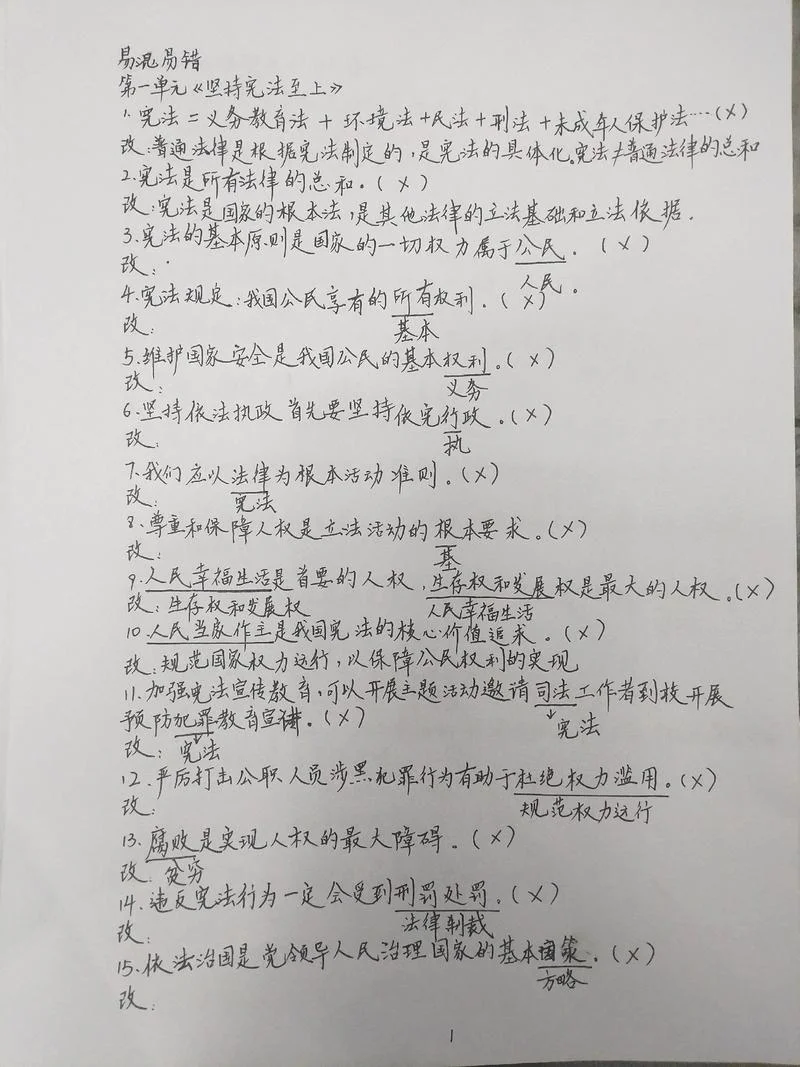 易混易错
第一单元《坚持宪法至上》
1.宪法=义务教育法+环境法+民法+刑法+未成年人保护法…(×)
改:普通法律是根据宪法制定的,是宪法的具体化。宪法≠普通法律的总和
2.宪法是所有法律的总和。(×)
改:宪法是国家的根本法,是其他法律的立法基础和立法依据.
3.宪法的基本原则是国家的一切权力属于公民。(×)
改: 人民。
4.宪法规定:我国公民享有的所有权利。(×)
改: 基本
5.维护国家安全是我国公民的基本权利。(×)
改: 义务
6.坚持依法执政首先要坚持依宪行政。(×)
改: 执
7.我们应以法律为根本活动准则。(×)
改: 宪法
8.尊重和保障人权是立法活动的根本要求。(×)
改: 基
9.人民幸福生活是首要的人权,生存权和发展权是最大的人权。(×)
改:生存权和发展权 人民幸福生活
10.人民当家作主是我国宪法的核心价值追求。(×)
改:规范国家权力运行,以保障公民权利的实现
11.加强宪法宣传教育,可以开展主题活动邀请司法工作者到校开展
预防犯罪教育宣讲。(×) 宪法
改: 宪法
12.严厉打击公职人员涉黑犯罪行为有助于杜绝权力滥用。(×)
改: 规范权力运行
13.腐败是实现人权的最大障碍。(×)
改:贫穷
14.违反宪法行为一定会受到刑罚处罚。(×)
改: 法律制裁
15.依法治国是党领导人民治理国家的基本国策。(×)
改: 方略
1